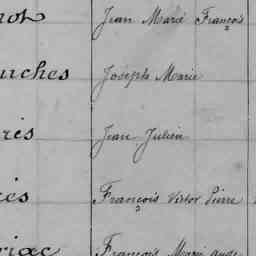 not Jean Marie François
uches Joseph Marie
rès Jean Julien
cès François Victor Pierre
riac François Marie Ange